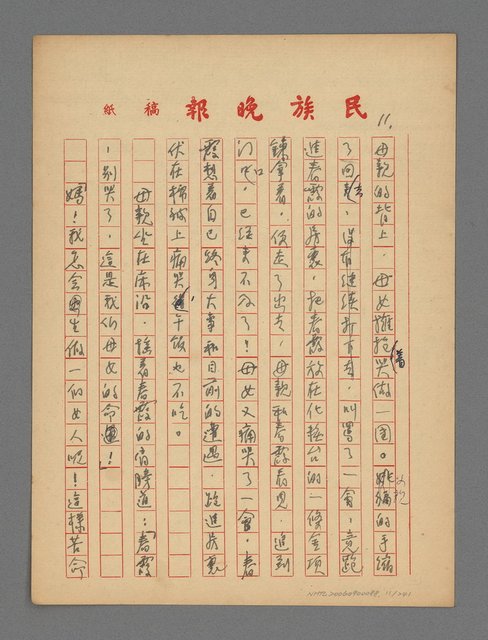 民族晚報 稿紙
11.
母親的背上，母女擁抱著哭做一團。父親的手縮
了回去，沒有繼續打下去，叫罵了一會，竟跑
進春霞的房裏，把春霞放在化粧台的一條金項
鍊拿著，便走了出去，母親和春霞看見，追到
門口，已經來不及了！母女又痛哭了一會，春
霞想着自己終身大事和目前的遭遇，跑進房裏
伏在棉被上痛哭，連午飯也不吃。
母親坐在床沿，搖着春霞的肩膀道：「春霞
，別哭了，這是我們母女的命運！」
「媽！我怎會生做一個女人呢！這樣苦命
NMTL20060900098, 11/241